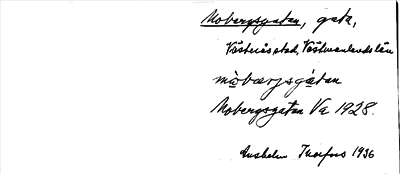 Mobergsgatan, gata,
Västerås stad, Västmanlands län
mò̀bærjsgàtan
Mobergsgatan Va 1928.
1936